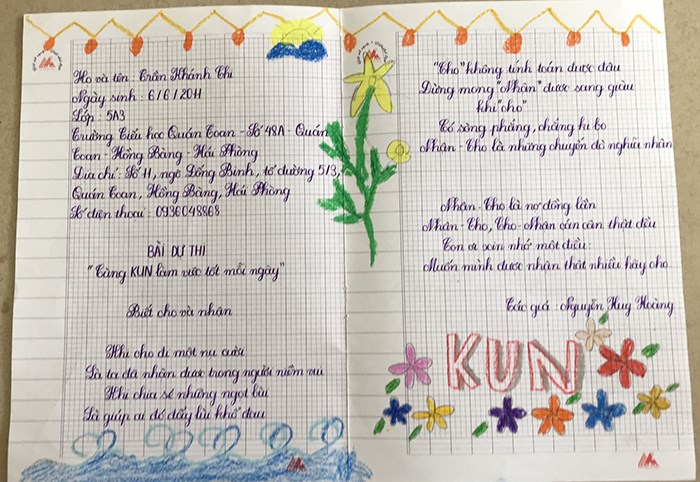 Họ và tên : Trần Khánh Thi
Ngày sinh : 6/6/2011
Lớp : 5A3
Trường Tiểu học Quán Toan - Số 48A - Quán
Toan - Hồng Bàng - Hải Phòng
Địa chỉ : Số 11, ngõ Đống Binh, tổ đường 5/3,
Quán Toan, Hồng Bàng, Hải Phòng
Số điện thoại : 0936048868
BÀI DỰ THI
"Cùng KUN làm việc tốt mỗi ngày"
Biết cho và nhận
Khi cho đi một nụ cười
Là ta đã nhận được trong người niềm vui
Khi chia sẻ những ngọt bùi
Là giúp ai đó đẩy lùi khổ đau
"Cho" không tính toán được đâu
Đừng mong "Nhận" được sang giàu
khi "cho"
Có sòng phẳng, chẳng hi bo
Nhận - Cho là những chuyến đò nghĩa nhân
Nhận - Cho là nợ đồng lần
Nhận - Cho, Cho - Nhận cán cân thật đều
Con ơi xin nhớ một điều:
Muốn mình được nhận thật nhiều hãy cho
Tác giả : Nguyễn Huy Hoàng
KUN